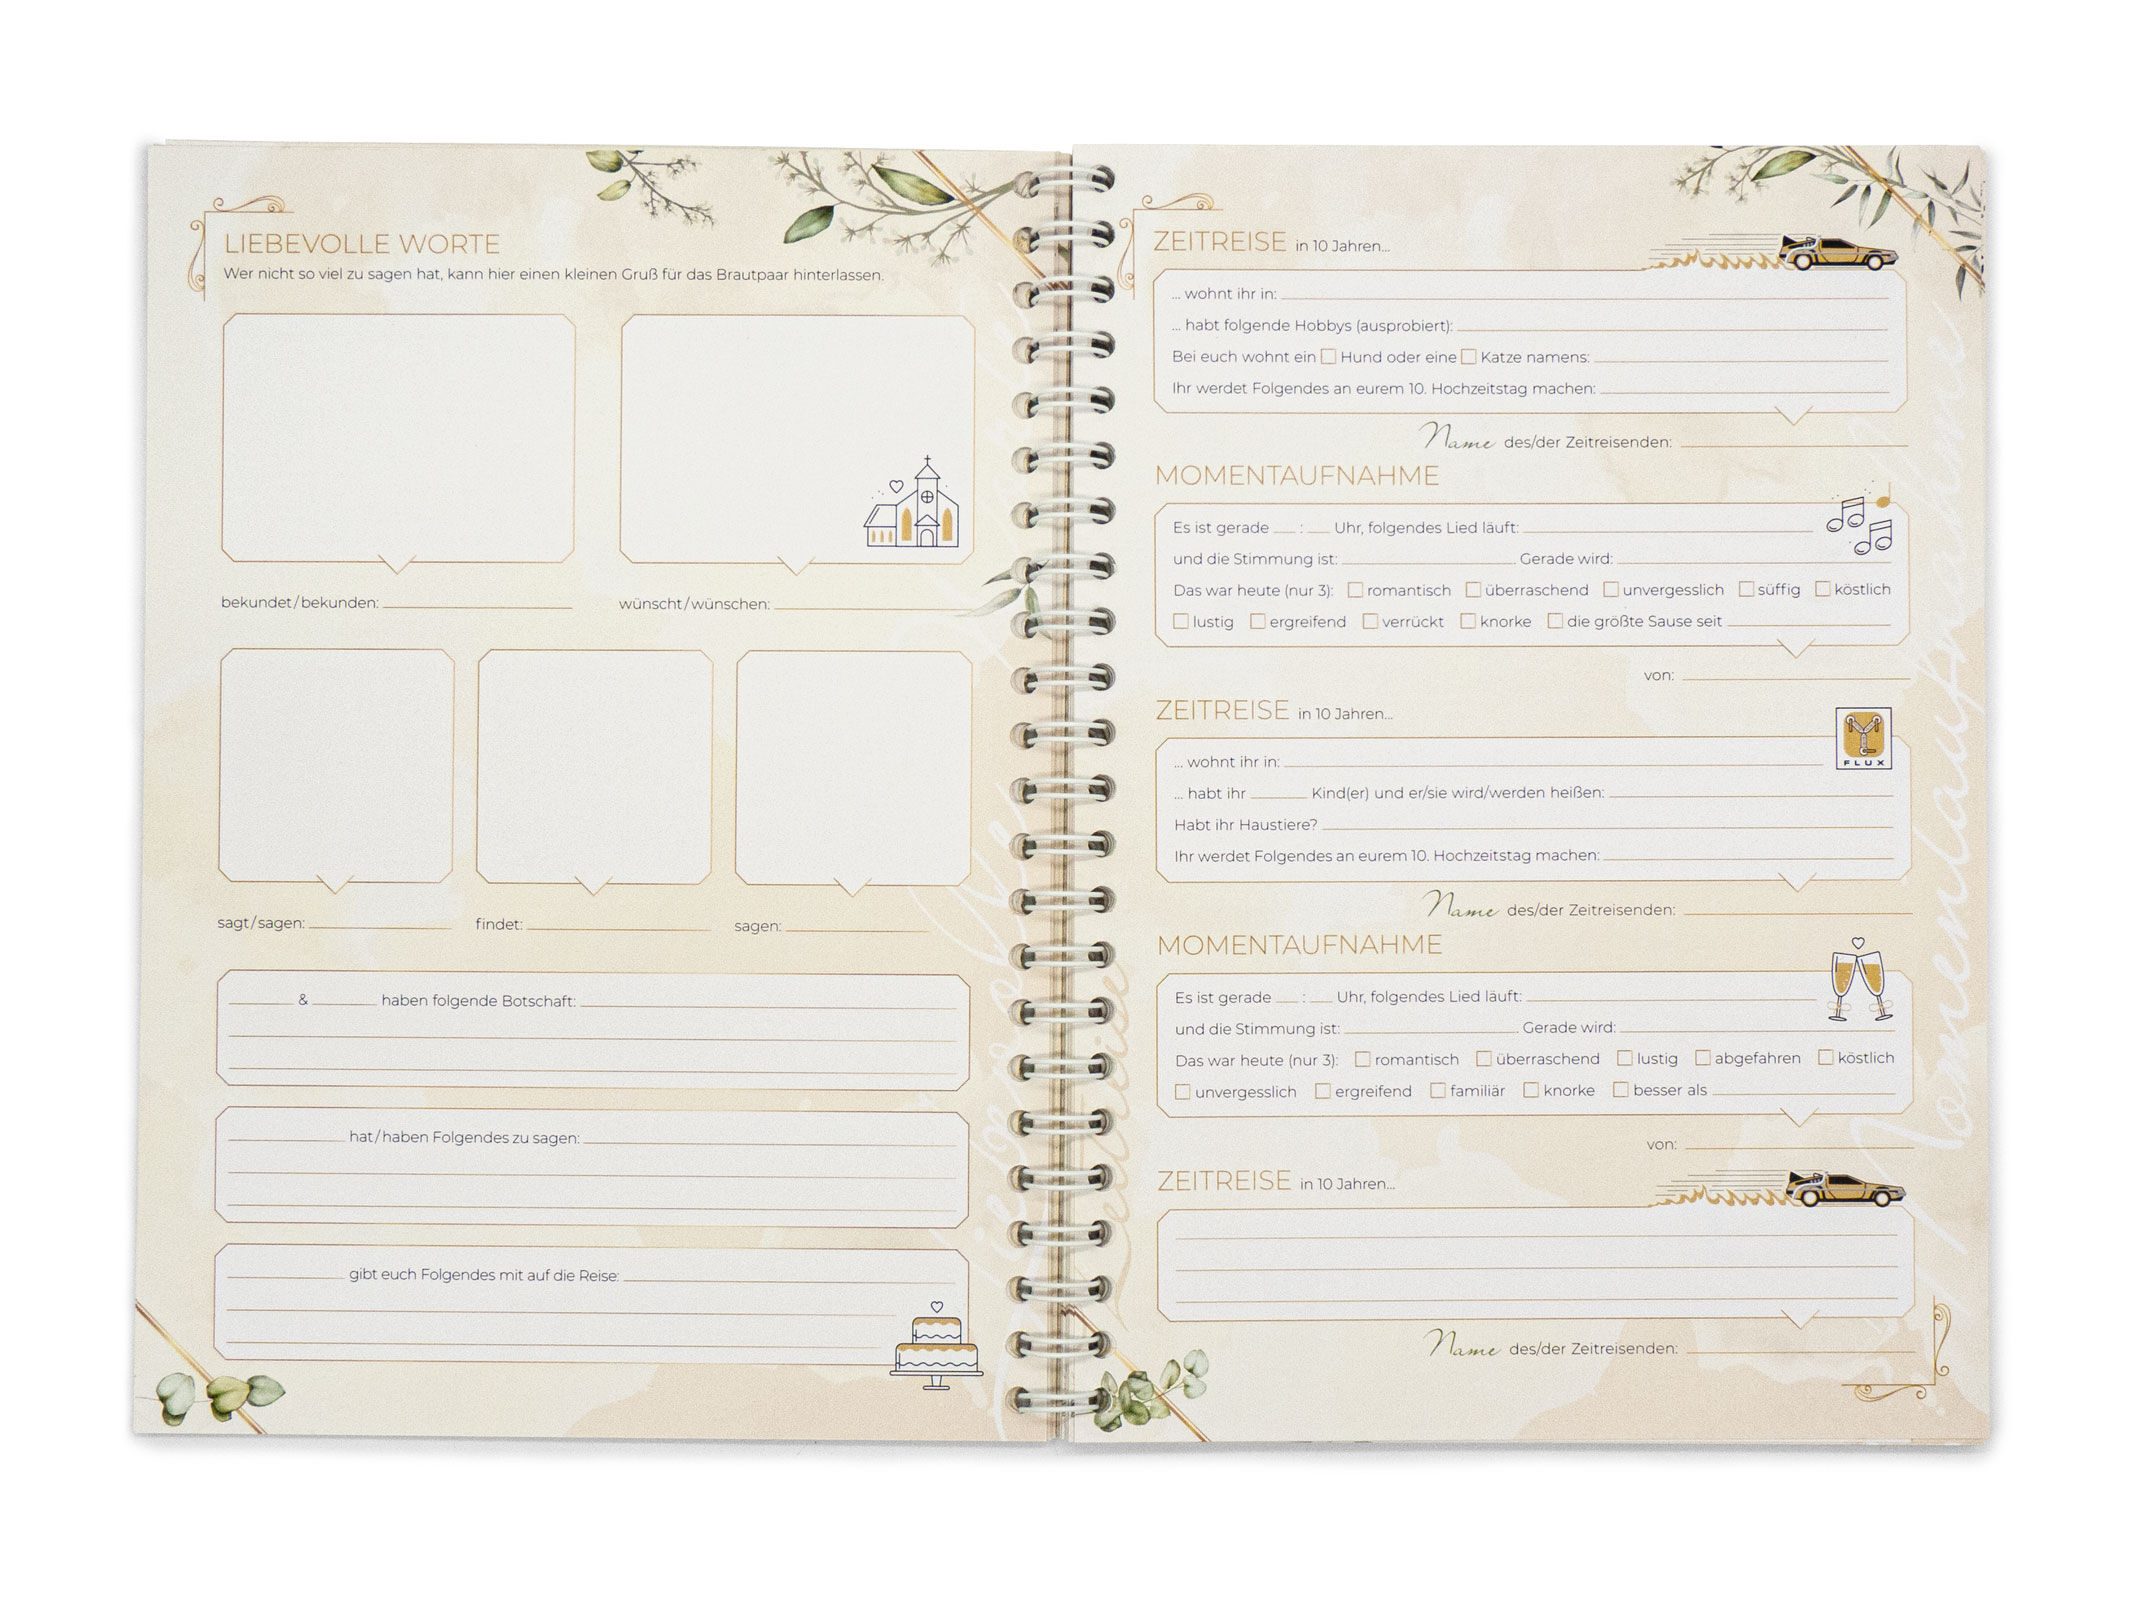 LIEBEVOLLE WORTE
Wer nicht so viel zu sagen hat, kann hier einen kleinen Gruß für das Brautpaar hinterlassen.
bekundet/bekunden:
wünscht/wünschen:
sagt/sagen:
findet:
sagen:
& haben folgende Botschaft:
hat/haben Folgendes zu sagen:
gibt euch Folgendes mit auf die Reise:
ZEITREISE in 10 Jahren...
... wohnt ihr in:
... habt folgende Hobbys (ausprobiert):
Bei euch wohnt ein Hund oder eine Katze namens:
Ihr werdet Folgendes an eurem 10. Hochzeitstag machen:
Name des/der Zeitreisenden:
MOMENTAUFNAHME
Es ist gerade : Uhr, folgendes Lied läuft:
und die Stimmung ist: . Gerade wird:
Das war heute (nur 3): romantisch überraschend unvergesslich süffig köstlich
lustig ergreifend verrückt knorke die größte Sause seit
von:
ZEITREISE in 10 Jahren...
FLUX
... wohnt ihr in:
... habt ihr Kind(er) und er/sie wird/werden heißen:
Habt ihr Haustiere?
Ihr werdet Folgendes an eurem 10. Hochzeitstag machen:
Name des/der Zeitreisenden:
MOMENTAUFNAHME
Es ist gerade : Uhr, folgendes Lied läuft:
und die Stimmung ist: . Gerade wird:
Das war heute (nur 3): romantisch überraschend lustig abgefahren köstlich
unvergesslich ergreifend familiär knorke besser als
von:
ZEITREISE in 10 Jahren...
Name des/der Zeitreisenden:
Momentaufnahme